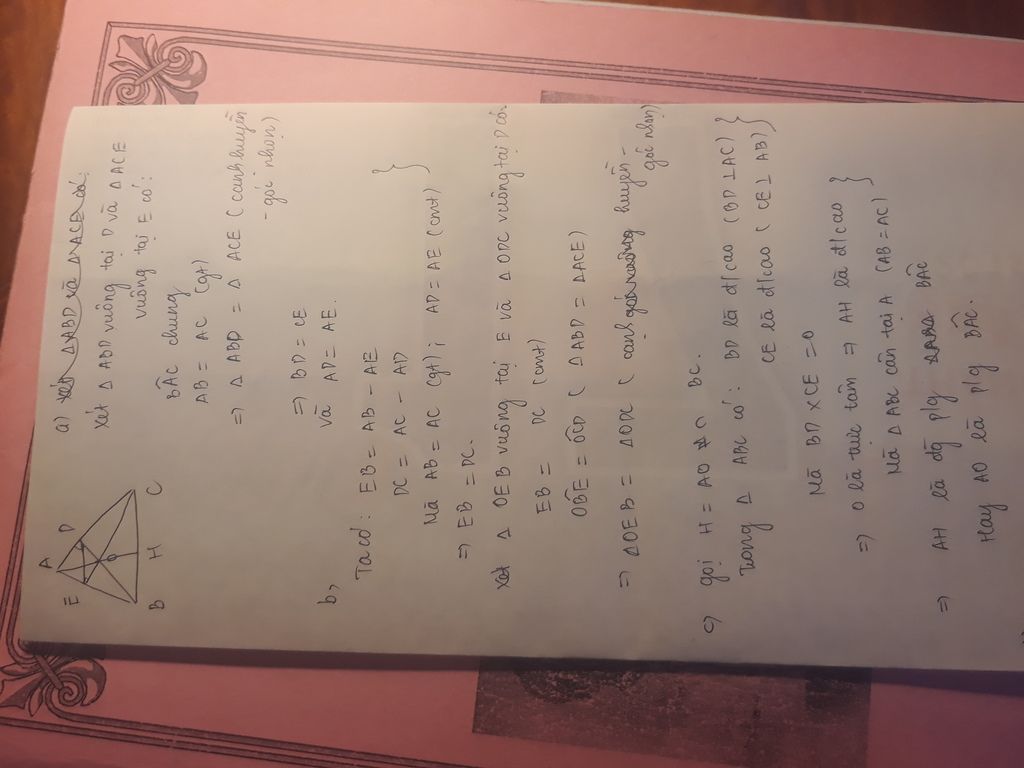 A
E
D
O
B
H
C
a) xét ΔABD và ΔACE có:
Xét Δ ABD vuông tại D và Δ ACE
vuông tại E có:
BÂC chung
AB = AC (gt)
=> Δ ABD = Δ ACE (cạnh huyền
- góc nhọn)
=> BD = CE
và AD = AE.
b,
Ta có : EB = AB - AE
DC = AC - AD }
Mà AB = AC (gt) ; AD = AE (cmt)
=> EB = DC.
Xét Δ OEB vuông tại E và Δ ODC vuông tại D có:
EB = DC (cmt)
OB̂E = OĈD ( Δ ABD = ΔACE)
=> ΔOEB = ΔODC ( cạnh góc vuông huyền -
góc nhọn)
c) gọi H = AO ∩ BC.
Trong Δ ABC có : BD là đ/cao (BD ⊥ AC) }
CE là đ/cao ( CE ⊥ AB)
Mà BD x CE = O
=> O là trực tâm => AH là đ/cao }
Mà Δ ABC cân tại A (AB = AC)
=> AH là đg p/g BÂC
Hay AO là p/g BÂC.